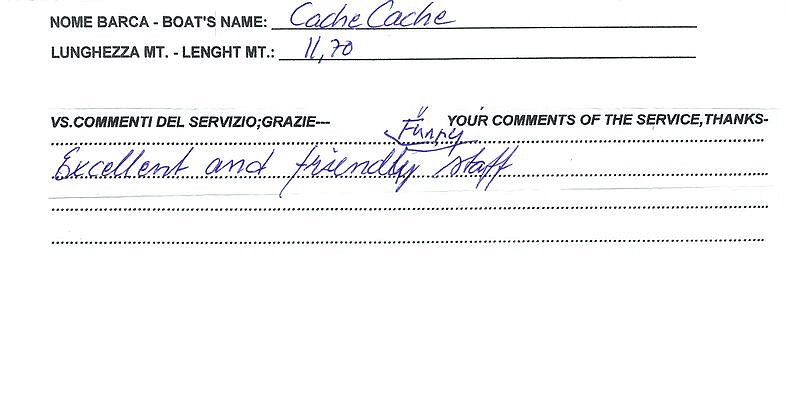 NOME BARCA - BOAT'S NAME: Cache Cache
LUNGHEZZA MT. - LENGHT MT.: 11,70
VS.COMMENTI DEL SERVIZIO;GRAZIE--- YOUR COMMENTS OF THE SERVICE,THANKS-
Funny
Excellent and friendly staff